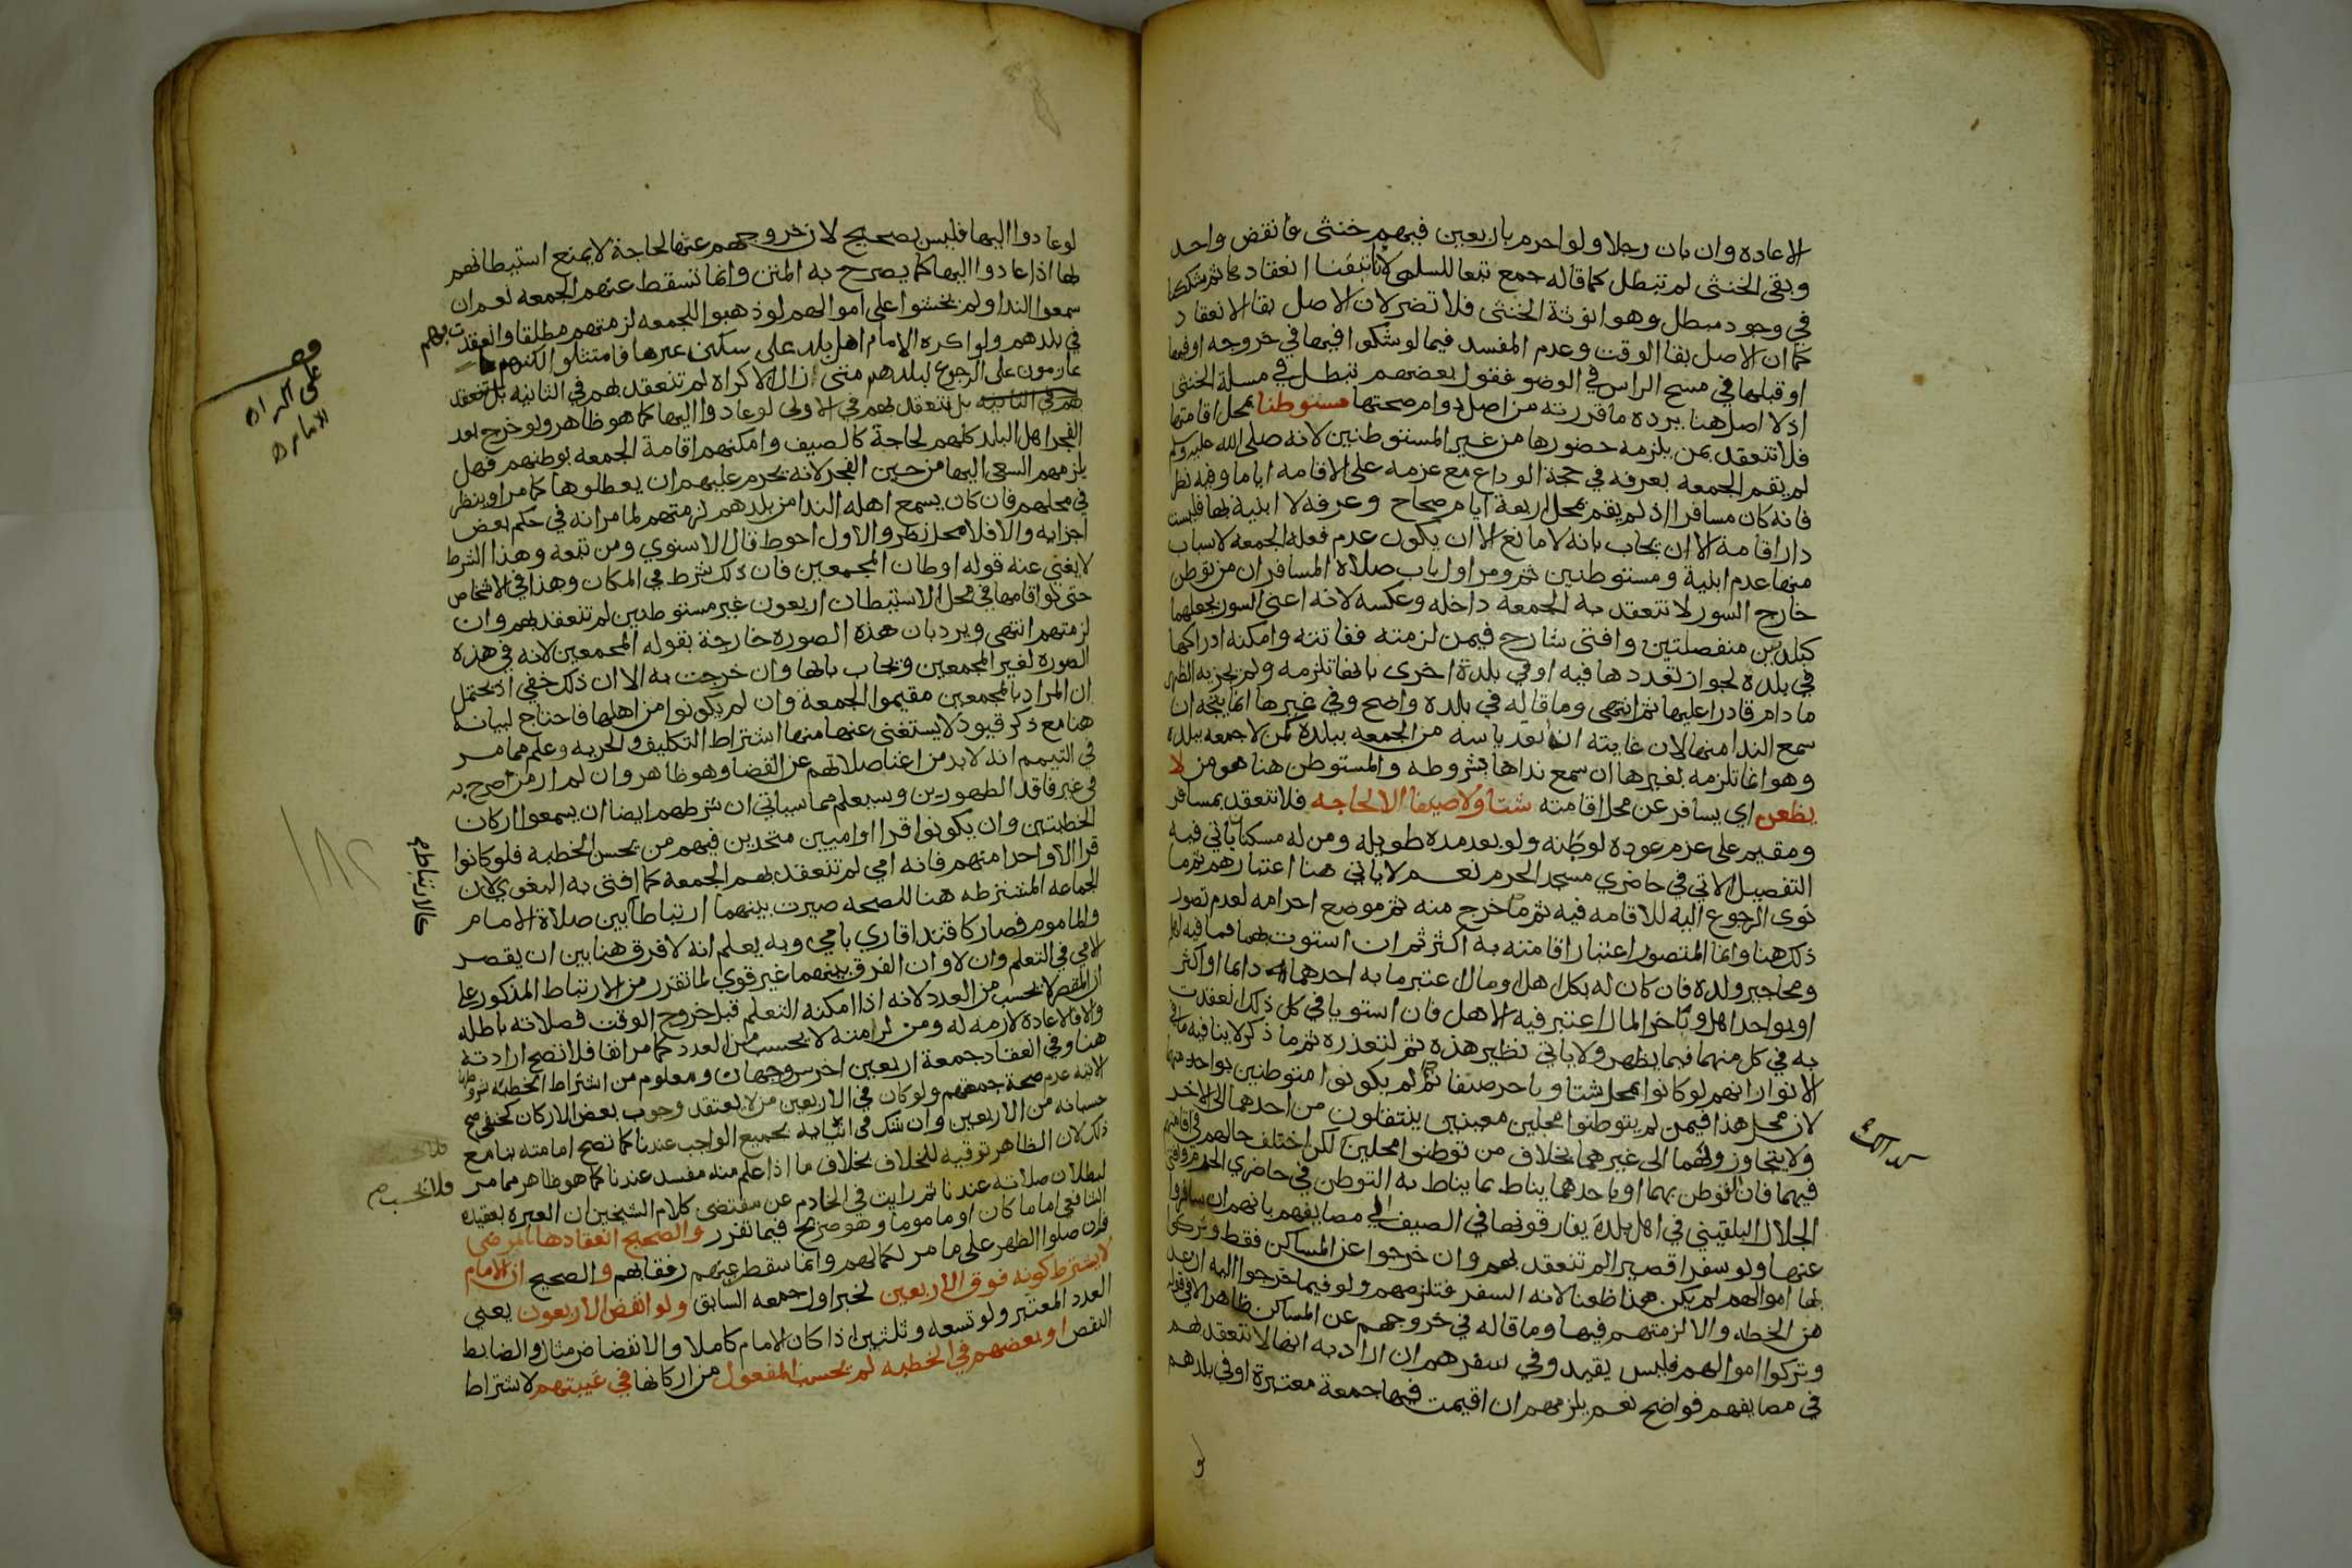 الاعاده وان بان رجلا ولو احرم باربعين فيهم خنثى فانفض واحد
وبقي الخنثى لم تبطل كما قاله جمع تبعا للسبكي لانا تيقنا انعقادها ثم شككنا
في وجود مبطل وهو انوثة الخنثى فلا تضر لان الاصل بقا الانعقاد
كما ان الاصل بقا الوقت وعدم المفسد فيما لو شكوا فيها في خروجه او فيها
او قبلها في مسح الراس في الوضو فقول بعضهم تبطل في مسلة الخنثى
اذ لا اصل هنا يرده ما قررته من اصل دوام صحتها مستوطنا بمحل اقامتها
فلا تنعقد بمن يلزمه حضورها من غير المستوطنين لانه صلى الله عليه وسلم
لم يقم الجمعه بعرفه في حجة الوداع مع عزمه على الاقامه اياما وفيه نظر
فانه كان مسافرا اذ لم يقم بمحل اربعة ايام صحاح وعرفه لا ابنية بها فليست
دار اقامة الا ان يجاب بانه لا مانع الا ان يكون عدم فعله الجمعه لاسباب
منها عدم ابنية ومستوطنين ثم ومر اول باب صلاة المسافر ان من توطن
خارج السور لا تنعقد به الجمعه داخله وعكسه لانه اعني السور يجعلهما
كبلدتين منفصلتين وافتى شارح فيمن لزمته ففاتته وامكنه ادراكها
في بلده لجواز تعددها فيه او في بلدة اخرى بانها تلزمه ولم يجزيه الظهر
ما دام قادرا عليها ثم انتهى وما قاله في بلده واضح وفي غيرها انما يتجه ان
سمع الندا منها لان غايته انه بعد ياسه من الجمعه ببلده كمن لا جمعه ببلده
وهو انما تلزمه بغيرها ان سمع نداها بشروطه والمستوطن هنا هو من لا
يظعن اي يسافر عن محل اقامته شتا ولا صيفا الا لحاجه فلا تنعقد بمسافر
ومقيم على عزم عوده لوطنه ولو بعد مده طويله ومن له مسكنان ياتي فيه
التفصيل الاتي في حاضري مسجد الحرم نعم لا ياتي هنا اعتبارهم ثم ما
نوى الرجوع اليه للاقامه فيه ثم ما خرج منه ثم موضع احرامه لعدم تصور
ذلك هنا وانما المتصور اعتبار اقامته به اكثر ثم ان استوت بهما فما فيه اهله
ومحاجير ولده فان كان له بكل اهل او مال اعتبر ما به احدهما دايما او اكثر
او بواحد اهل وباخر المال اعتبر فيه الاهل فان استويا في كل ذلك انعقدت
به في كل منهما فيما يظهر ولا ياتي نظير هذه ثم لتعذره ثم وما ذكر لا ينافيه ما في
الانوار انهم لو كانوا بمحل شتا وباخر صيفا لم يكونوا متوطنين بواحد منهما
لان محل هذا فيمن لم يتوطنوا محلين معينين ينتقلون من احدهما الى الاخر
ولا يتجاوزونهما الى غيرهما بخلاف من توطنوا محلين لكن اختلف حالهم في اقامتهم
فيهما فان التوطن بهما او باحدهما يناط بما يناط به التوطن في حاضري الحرم وافتى
الجلال البلقيني في اهل بلدة يفارقونها في الصيف الى مصايفهم بانهم ان سافروا
عنها ولو سفرا قصيرا لم تنعقد بهم وان خرجوا عن المساكن فقط وتركوا
بها اموالهم لم يكن هذا ظعنا لانه السفر فتلزمهم ولو فيما خرجوا اليه ان عد
من الخطه والا لزمتهم فيها وما قاله في خروجهم عن المساكن ظاهر الا في قوله
وتركوا اموالهم فليس بقيد وفي سفرهم ان اراد به انها لا تنعقد بهم
في مصايفهم فواضح نعم يلزمهم ان اقيمت فيها جمعة معتبرة او في بلدهم
لو
لو عادوا اليها فليس بصحيح لان خروجهم عنها لحاجة لا يمنع استيطانهم
بها اذا عادوا اليها كما يصرح به المتن وانما تسقط عنهم الجمعه نعم ان
سمعوا الندا ولم يخشوا على اموالهم لو ذهبوا للجمعه لزمتهم مطلقا وانعقدت بهم
في بلدهم ولو اكره الامام اهل بلد على سكنى غيرها فامتثلوا لكنهم
عازمون على الرجوع لبلدهم متى زال الاكراه لم تنعقد بهم في الثانيه بل تنعقد
بهم في الثانيه بل تنعقد بهم في الاولى لو عادوا اليها كما هو ظاهر ولو خرج بعد
الفجر اهل البلد كلهم لحاجة كالصيف وامكنهم اقامة الجمعه بوطنهم فهل
يلزمهم السعي اليها من حين الفجر لانه يحرم عليهم ان يعطلوها كما مر او ينظر
في محلهم فان كان يسمع اهله الندا من بلدهم لزمتهم لما مر انه في حكم بعض
اجزايه والا فلا محل نظر والاول احوط قال الاسنوي ومن تبعه وهذا الشرط
لا يغني عنه قوله اوطان المجمعين فان ذلك شرط في المكان وهذا في الاشخاص
حتى لو اقامها في محل الاستيطان اربعون غير مستوطنين لم تنعقد بهم وان
لزمتهم انتهى ويرد بان هذه الصوره خارجة بقوله المجمعين لانه في هذه
الصوره لغير المجمعين ويجاب بانها وان خرجت به الا ان ذلك خفي اذ يحتمل
ان المراد بالمجمعين مقيموا الجمعة وان لم يكونوا من اهلها فاحتاج لبيانه
هنا مع ذكر قيود لا يستغنى عنها منها اشتراط التكليف والحريه وعلم مما مر
في التيمم انه لا بد من اغنا صلاتهم عن القضا وهو ظاهر وان لم ار من صرح به
في غير فاقد الطهورين وسيعلم مما سياتي ان شرطهم ايضا ان يسمعوا اركان
الخطبتين وان يكونوا قرا او اميين متحدين فيهم من يحسن الخطبه فلو كانوا
قرا الا واحدا منهم فانه امي لم تنعقد بهم الجمعه كما افتى به البغوي لان
الجماعه المشترطه هنا للصحه صيرت بينهما ارتباطا بين صلاة الامام
والماموم فصار كاقتدا قاري بامي وبه يعلم انه لا فرق هنا بين ان يقصر
الامي في التعلم وان لا وان الفرق بينهما غير قوي لما تقرر من الارتباط المذكور على
ان المقصر لا يحسب من العدد لانه اذا امكنه التعلم قبل خروج الوقت فصلاته باطله
والا فالاعاده لازمه له ومن لزمته لا يحسب من العدد كما مر انفا فلا تصح ارادته
هنا وفي انعقاد جمعة اربعين اخرس وجهان ومعلوم من اشتراط الخطبه بشروطها
الاتيه عدم صحة جمعتهم ولو كان في الاربعين من لا يعتقد وجوب بعض الاركان كحنفي صح
حسبانه من الاربعين وان شك في اتيانه بجميع الواجب عندنا كما تصح امامته بنا مع
ذلك لان الظاهر توقيه للخلاف بخلاف ما اذا علم منه مفسد عندنا كما هو ظاهر مما مر
لبطلان صلاته عندنا ثم رايت في الخادم عن مقتضى كلام الشيخين ان العبره بعقيدة
الشافعي اماما كان او ماموما وهو صريح فيما تقرر والصحيح انعقادها بالمرضى
فان صلوا الظهر على ما مر لكمالهم وانما سقط عنهم رفقا بهم والصحيح ان الامام
لا يشترط كونه فوق الاربعين لخبر اول جمعه السابق ولو انفض الاربعون يعني
العدد المعتبر ولو تسعه وثلثين اذا كان الامام كاملا والانفضاض مثال والضابط
النقص او بعضهم في الخطبه لم يحسب المفعول من اركانها في غيبتهم لاشتراط
حالارتباطهم
فلا يحسب صح